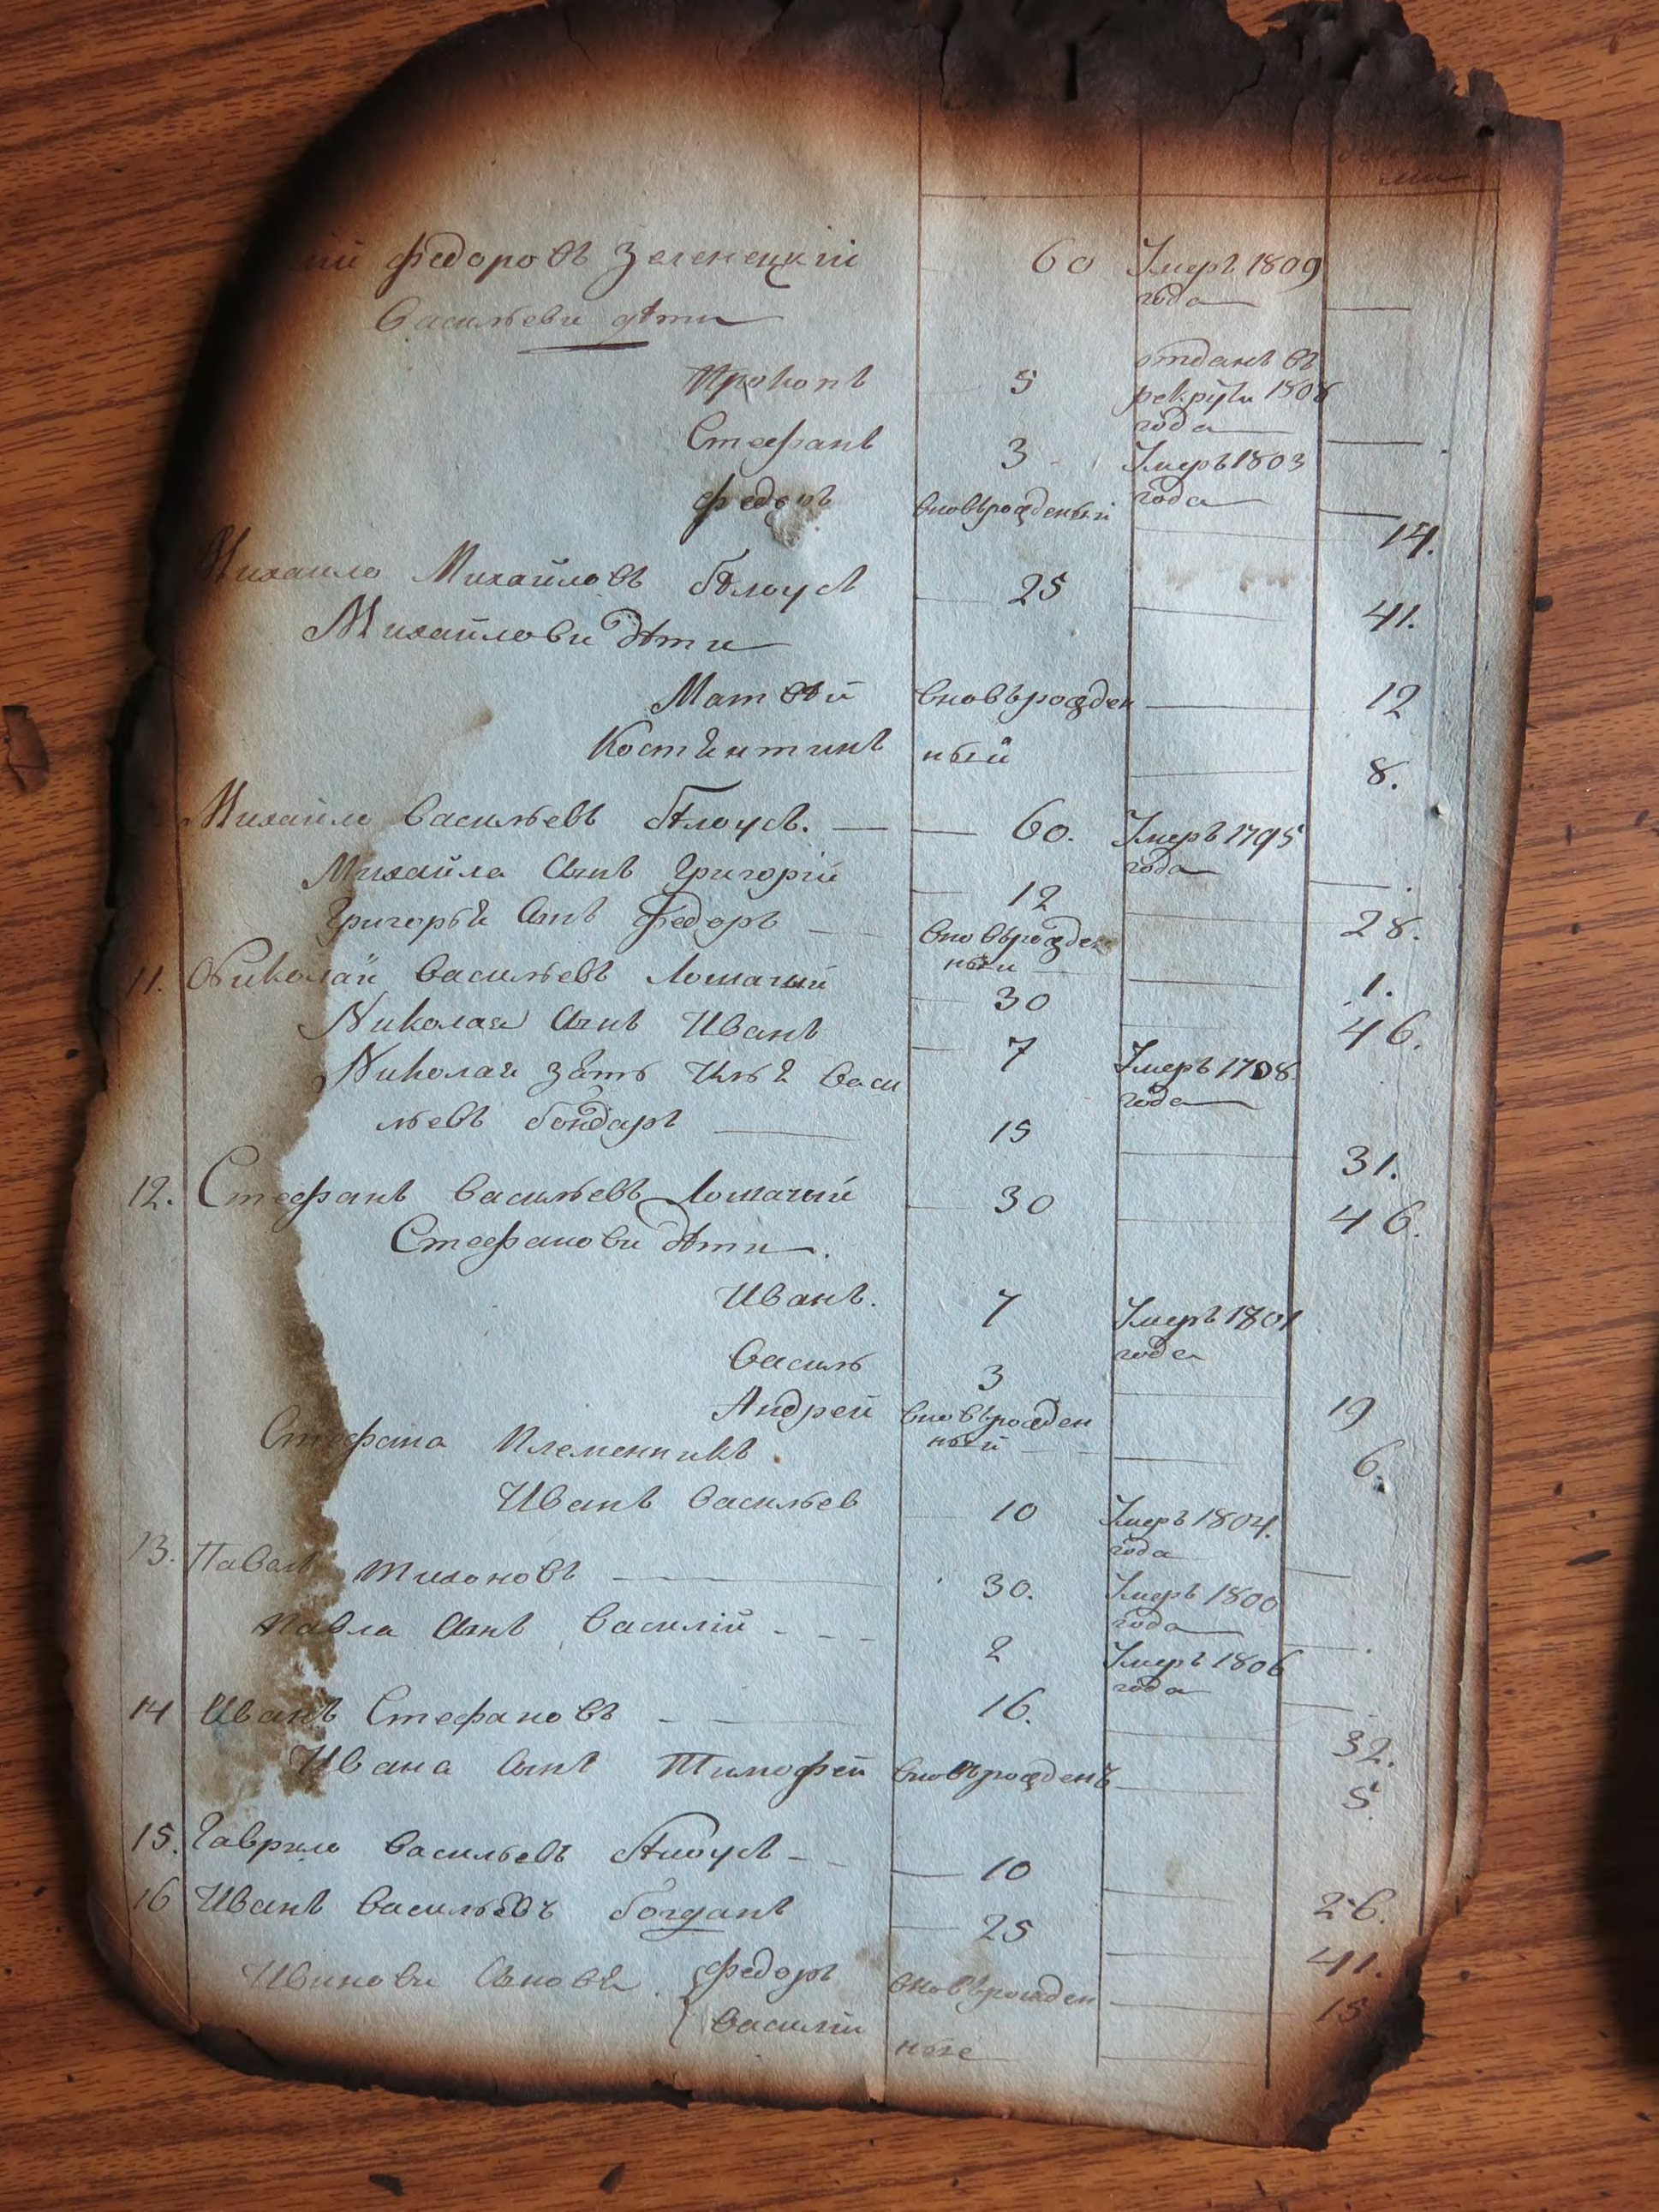 ми
ий Федоровъ Зеленецкій 60 Умеръ 1809
года
Васильеви дѣти
отданъ въ
Прокопъ 5 рекруты 1808
года
Стефанъ 3 Умеръ 1803
года
Федоръ вновърожденый 14.
Михайло Михайловъ бѣлоусъ 25 41.
Михайлови дѣти
Матвѣй вновърожден 12
Костянтинъ ный 8.
Михайло Васильевъ бѣлоусъ. 60. Умеръ 1795
года
Михайла сынъ Григорій 12 28.
Григорья сынъ Федоръ вновърожден
ный 1.
11. Николай Васильевъ Лошачый 30 46.
Николая сынъ Иванъ 7 Умеръ 1798.
года
Николая зять Илья Васи
льевъ бондаръ 15 31.
12. Стефанъ Васильевъ Лошачый 30 46.
Стефанови дѣти.
Иванъ. 7 Умеръ 1801
года
Василь 3 19
Андрей вновърожден
ный 6.
Стефана племенникъ
Иванъ Васильев 10 Умеръ 1804.
года
13. Павелъ Тихоновъ 30. Умеръ 1800
года
Павла сынъ Василій 2 Умеръ 1806
года
14 Иванъ Стефановъ 16. 32.
Ивана сынъ Тимофей вновърожденъ 5.
15. Гаврило Васильевъ бѣлоусъ 10 26.
16 Иванъ Васильевъ богданъ 25 41.
Иванови сыновья Федоръ вновърожден 15
Василій ные